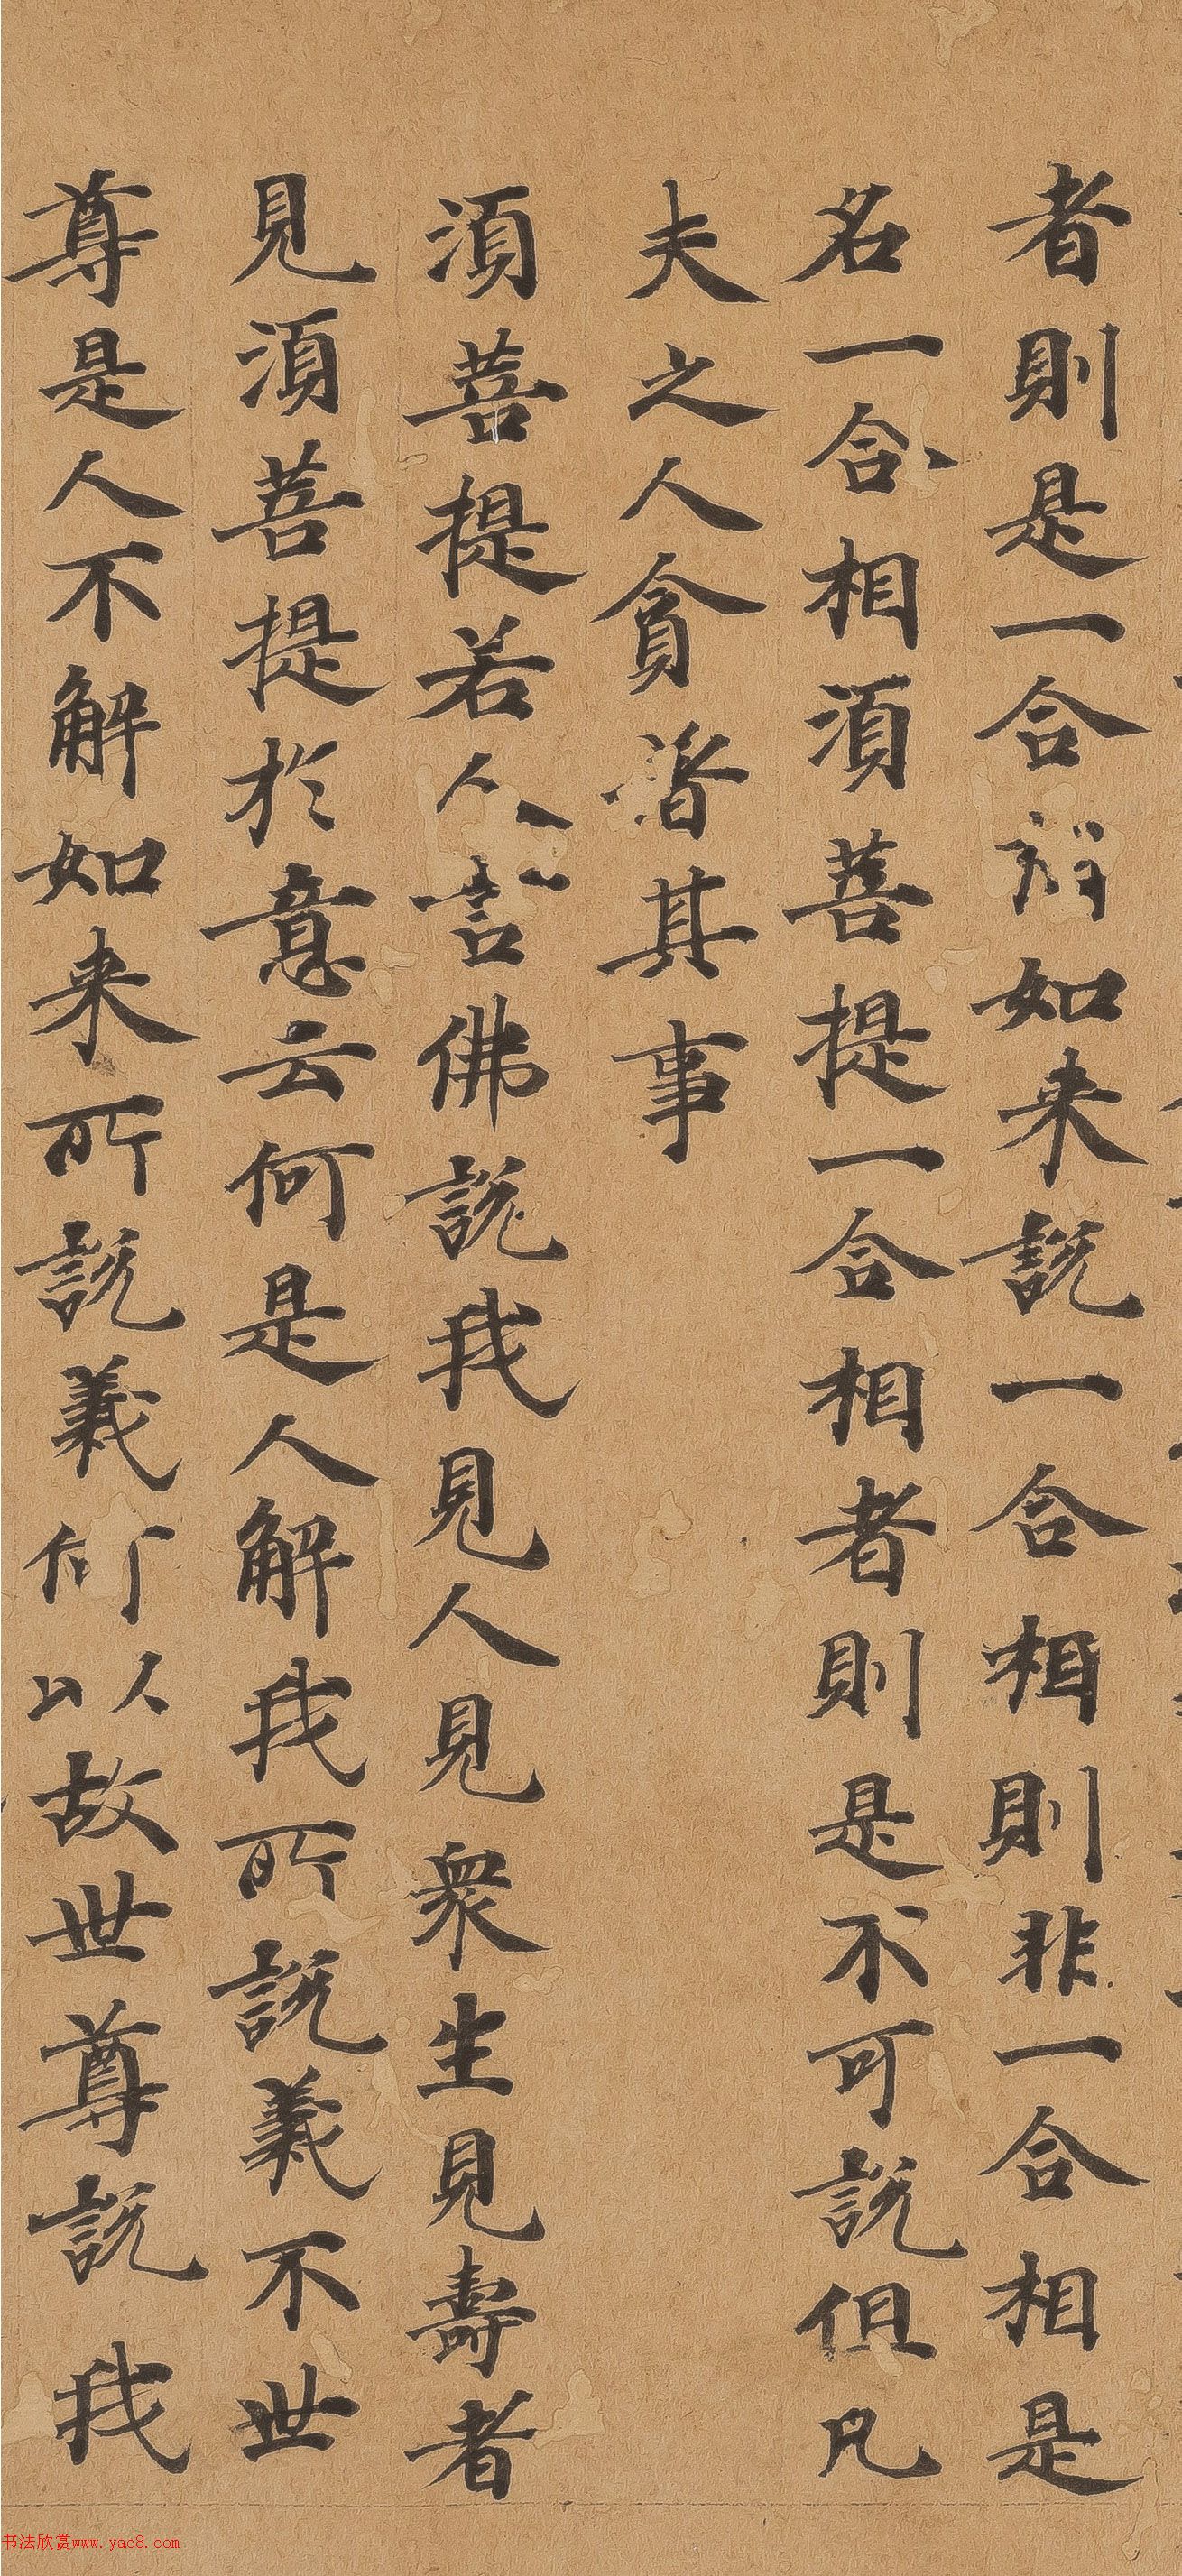 者則是一合相如来說一合相則非一合相是
名一合相須菩提一合相者則是不可說但凡
夫之人貪著其事
須菩提若人言佛說我見人見衆生見壽者
見須菩提於意云何是人解我所說義不世
尊是人不解如来所說義何以故世尊說我
书法欣赏www.yac8.com